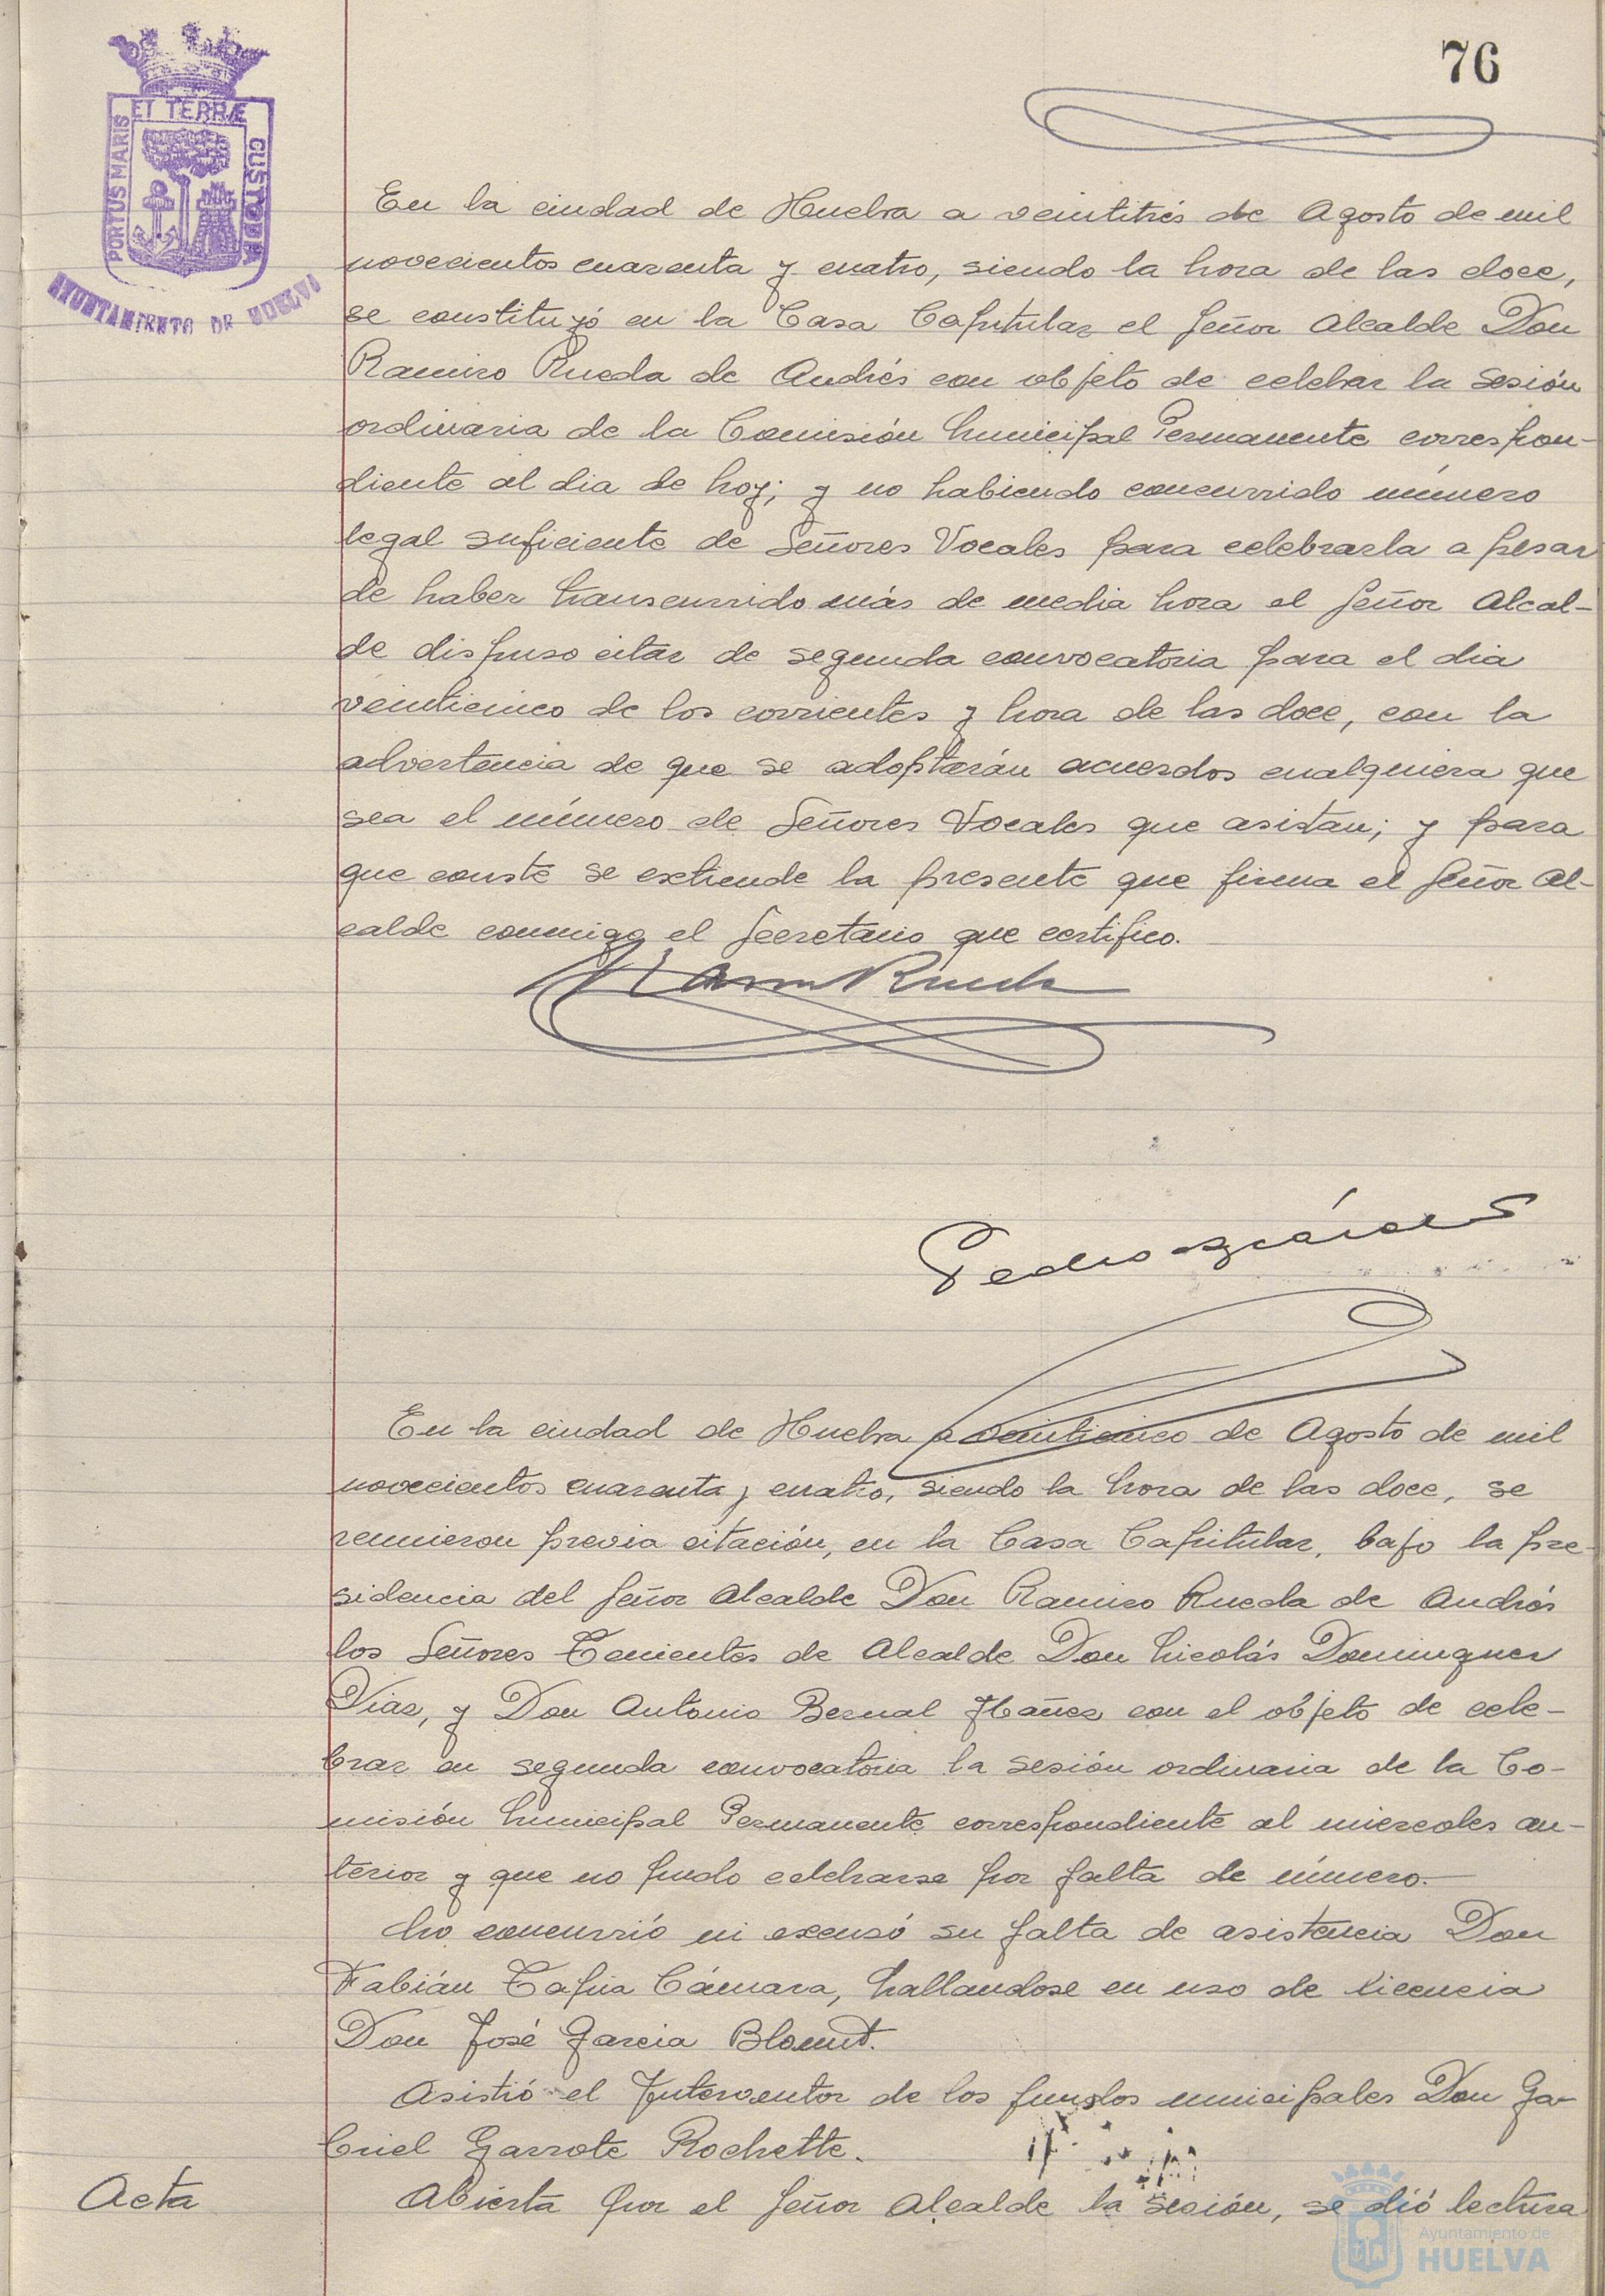 76
ET TERRÆ
PORTUS MARIS
CUSTODIA
AYUNTAMIENTO DE HUELVA
En la ciudad de Huelva a veintitrés de Agosto de mil
novecientos cuarenta y cuatro, siendo la hora de las doce,
se constituyó en la Casa Capitular el Señor Alcalde Don
Ramiro Rueda de Andrés con objeto de celebrar la sesión
ordinaria de la Comisión Municipal Permanente correspon-
diente al dia de hoy; y no habiendo concurrido número
legal suficiente de Señores Vocales para celebrarla a pesar
de haber transcurrido más de media hora el Señor Alcal-
de dispuso citar de segunda convocatoria para el dia
veinticinco de los corrientes y hora de las doce, con la
advertencia de que se adoptarán acuerdos cualquiera que
sea el número de Señores Vocales que asistan; y para
que conste se extiende la presente que firma el Señor Al-
calde conmigo el Secretario que certifico.
Ram Rueda
Pedro
En la ciudad de Huelva a veinticinco de Agosto de mil
novecientos cuarenta y cuatro, siendo la hora de las doce, se
reunieron previa citación, en la Casa Capitular, bajo la pre-
sidencia del Señor Alcalde Don Ramiro Rueda de Andrés
los Señores Tenientes de Alcalde Don Nicolás Dominguez
Diaz, y Don Antonio Bernal Ibañez con el objeto de cele-
brar en segunda convocatoria la sesión ordinaria de la Co-
misión Municipal Permanente correspondiente al miercoles an-
terior y que no pudo celebrarse por falta de número.-
No concurrió ni excusó su falta de asistencia Don
Fabián Tapia Cámara, hallandose en uso de licencia
Don José Garcia Blomst.
Asistió el Interventor de los fundos municipales Don Ga-
briel Garrote Rochette.
Acta
Abierta por el Señor Alcalde la sesión, se dió lectura
Ayuntamiento de
HUELVA